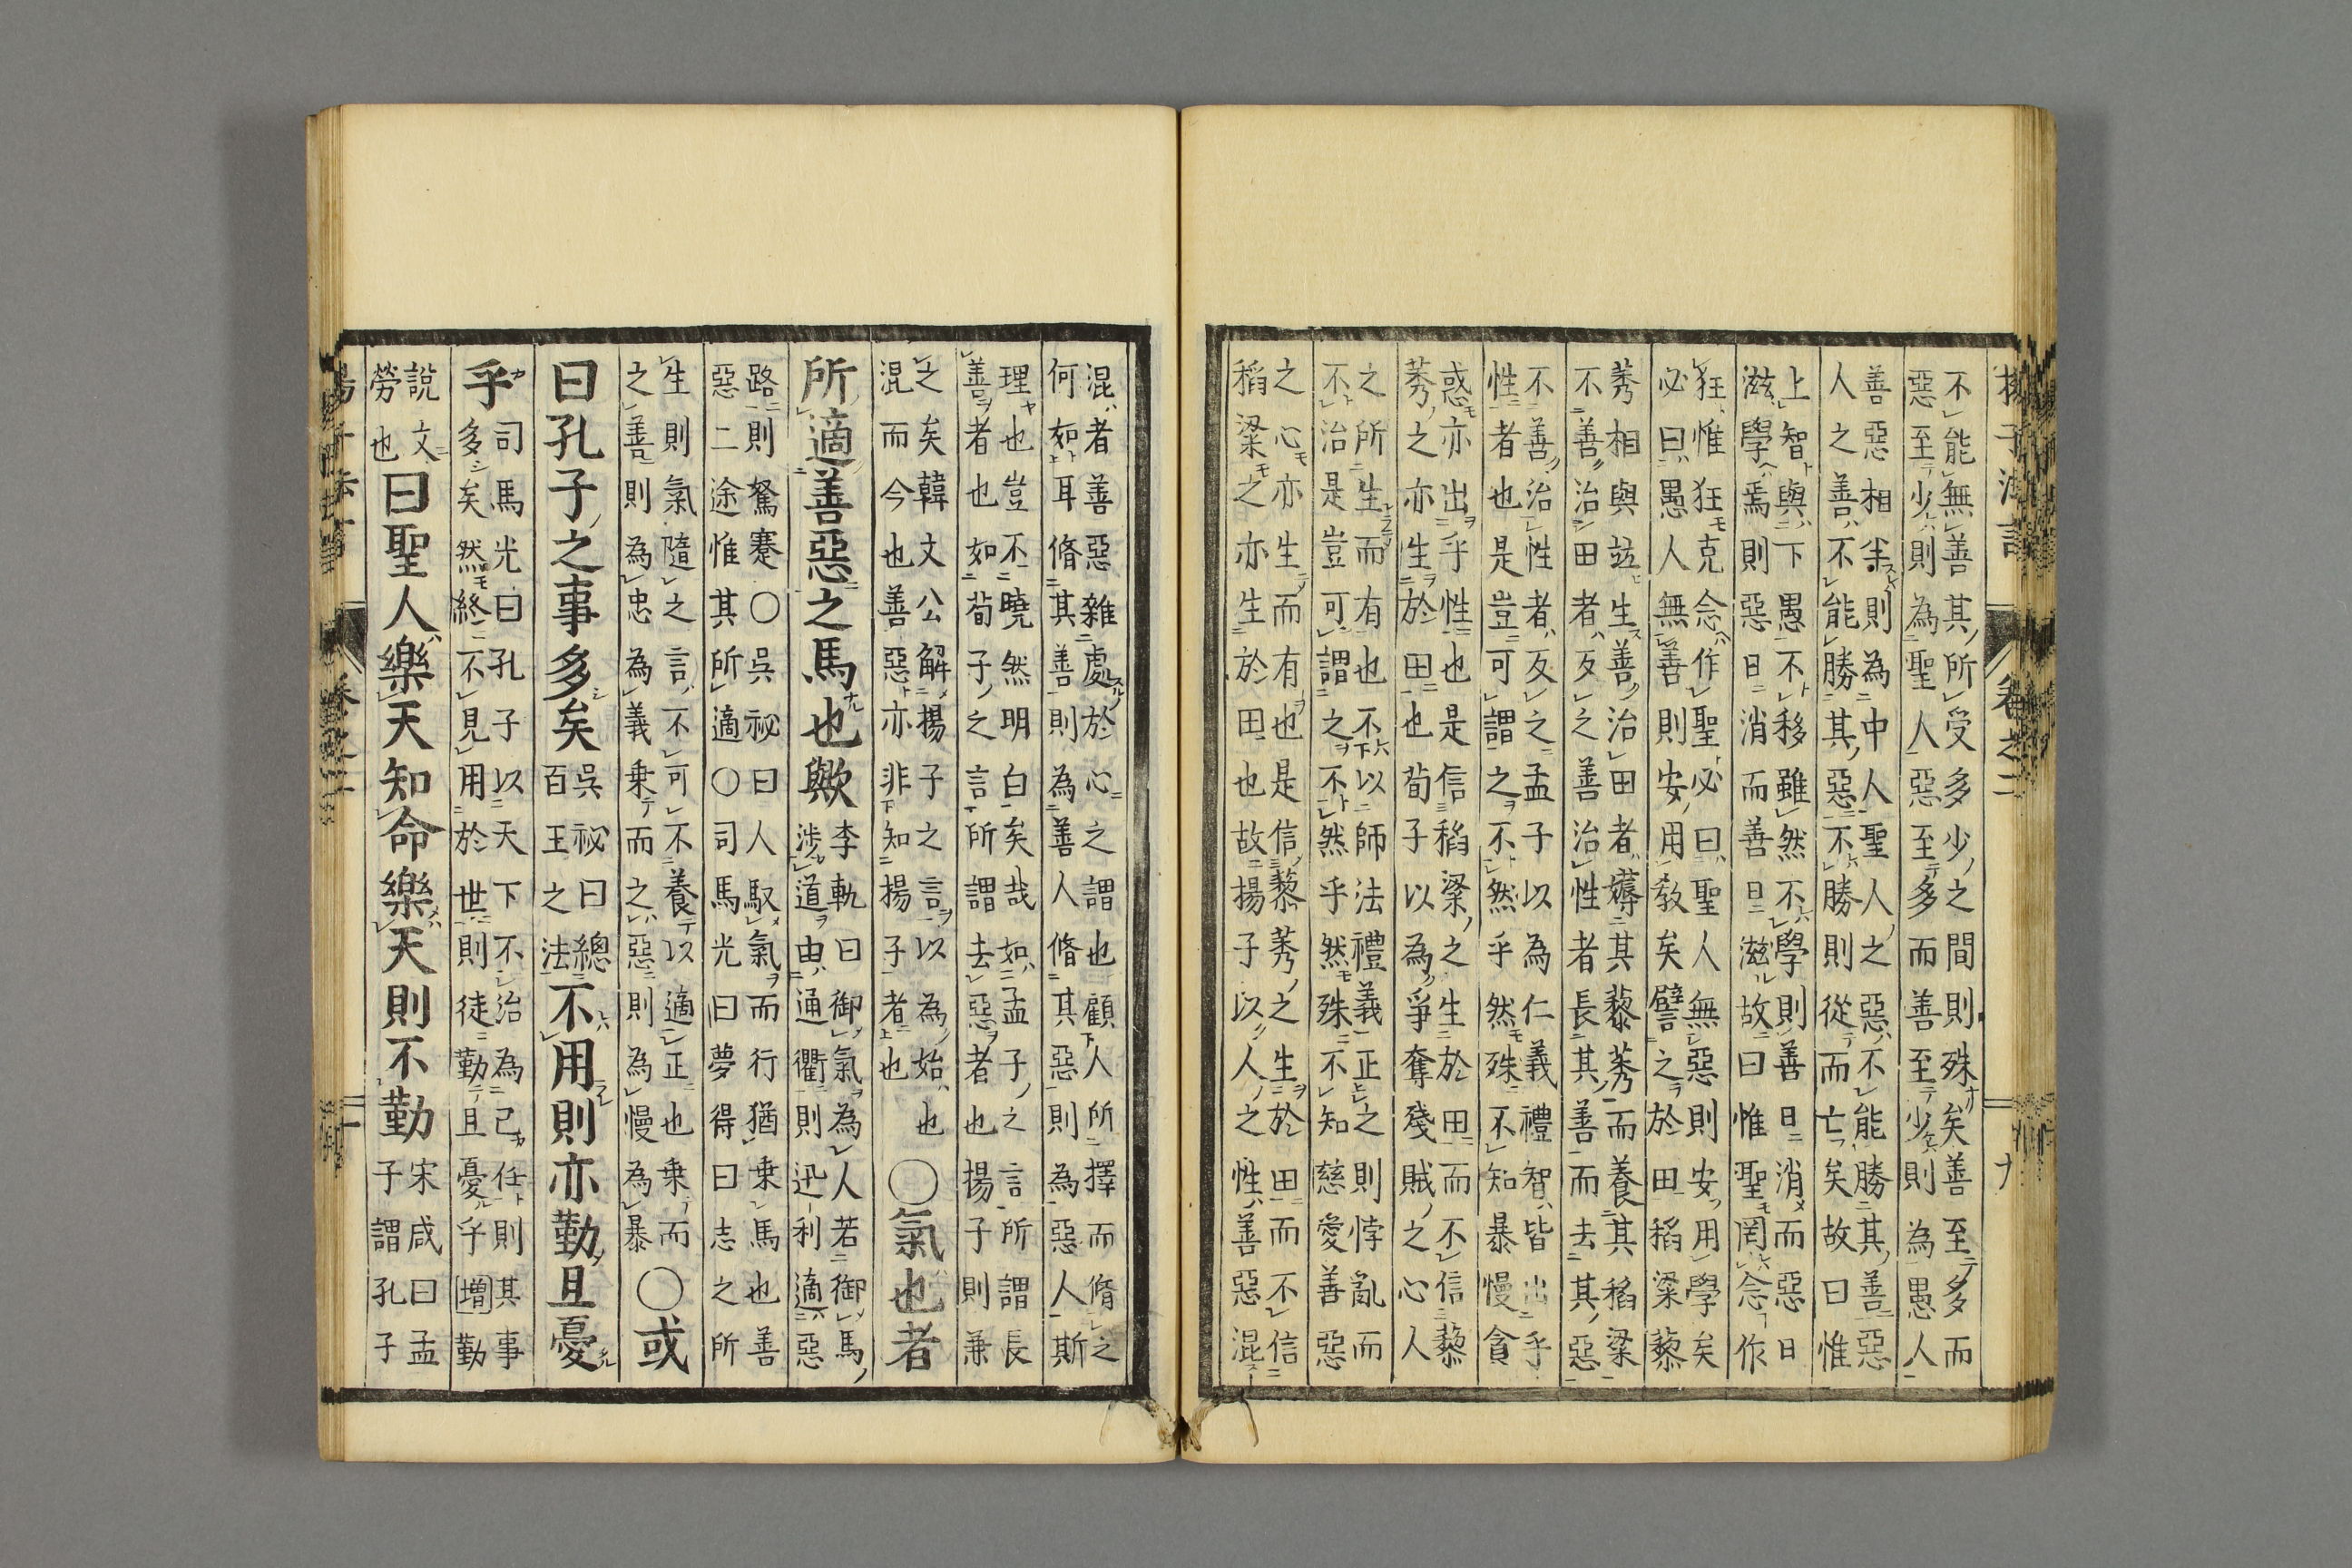 揚子法言　卷之二　九
不能無善其所受多少之間則殊矣善至多而
惡至少則為聖人惡至多而善至少則為愚人
善惡相半則為中人聖人之惡不能勝其善惡
人之善不能勝其惡不勝則從而亡矣故曰惟
上智與下愚不移雖然不學則善日消而惡日
滋學焉則惡日消而善日滋故曰惟聖罔念作
狂惟狂克念作聖必曰聖人無惡則安用學矣
必曰愚人無善則安用敎矣譬之於田稻粱藜
莠相與竝生善治田者耨其藜莠而養其稻粱
不善治田者反之善治性者長其善而去其惡
不善治性者反之孟子以為仁義禮智皆出乎
性者也是豈可謂之不然乎然殊不知暴慢貪
惑亦出乎性也是信稻粱之生於田而不信藜
莠之亦生於田也荀子以為爭奪殘賊之心人
之所生而有也不以師法禮義正之則悖亂而
不治是豈可謂之不然乎然殊不知慈愛善惡
之心亦生而有也是信藜莠之生於田而不信
稻粱之亦生於田也故揚子以人之性善惡混
混者善惡雜處於心之謂也顧人所擇而脩之
何如耳脩其善則為善人脩其惡則為惡人斯
理也豈不曉然明白矣哉如孟子之言所謂長
善者也如荀子之言所謂去惡者也揚子則兼
之矣韓文公解揚子之言以為始也
混而今也善惡亦非知揚子者也
〇氣也者
所適善惡之馬也歟
李軌曰御氣為人若御馬
涉道由通衢則迅利適惡
路則駑蹇〇吳祕曰人馭氣而行猶乗馬也善
惡二途惟其所適〇司馬光曰夢得曰志之所
生則氣隨之言不可不養以適正也乗而
之善則為忠為義乗而之惡則為慢為暴
〇或
曰孔子之事多矣
吳祕曰總
百王之法
不用則亦勤且憂
乎
司馬光曰孔子以天下不治為己任則其事
多矣然終不見用於世則徒勤且憂乎增勤
說文
勞也
曰聖人樂天知命樂天則不勤
宋咸曰孟
子謂孔子